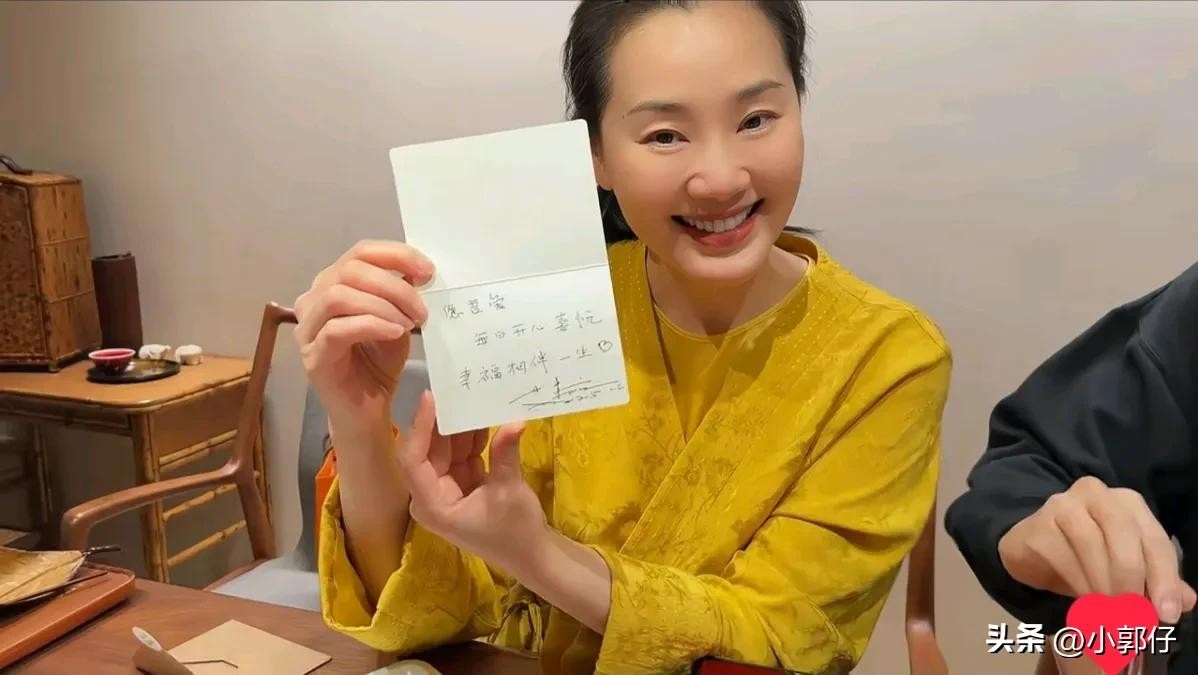 愿哲爱
每日开心喜悦
幸福相伴一生
头条 @小郭仔